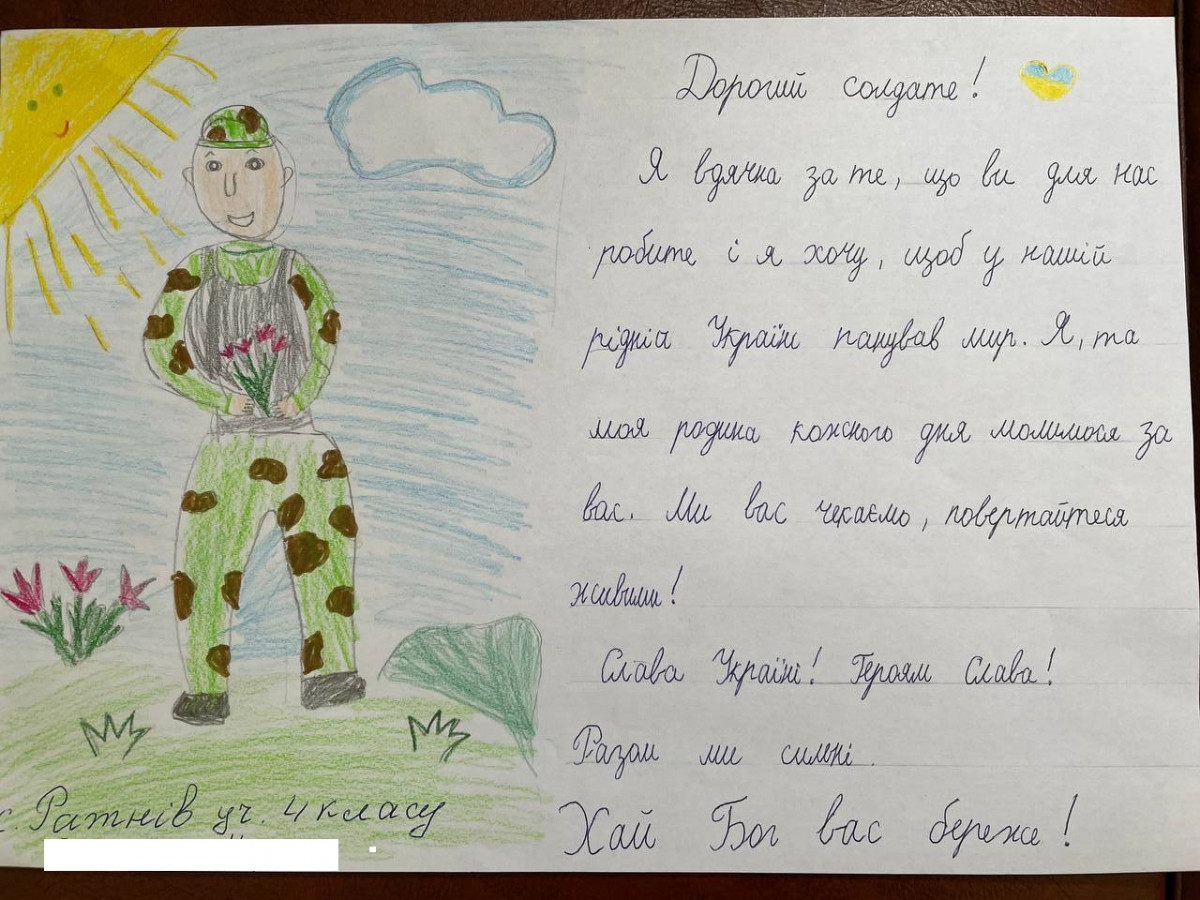 Дорогий солдате!
Я вдячна за те, що ви для нас
робите і я хочу, щоб у нашій
рідній Україні панував мир. Я, та
моя родина кожного дня молимося за
вас. Ми вас чекаємо, повертайтеся
живими!
Слава Україні! Героям Слава!
Разом ми сильні.
Хай Бог вас береже!
с. Ратнів уч. 4 класу